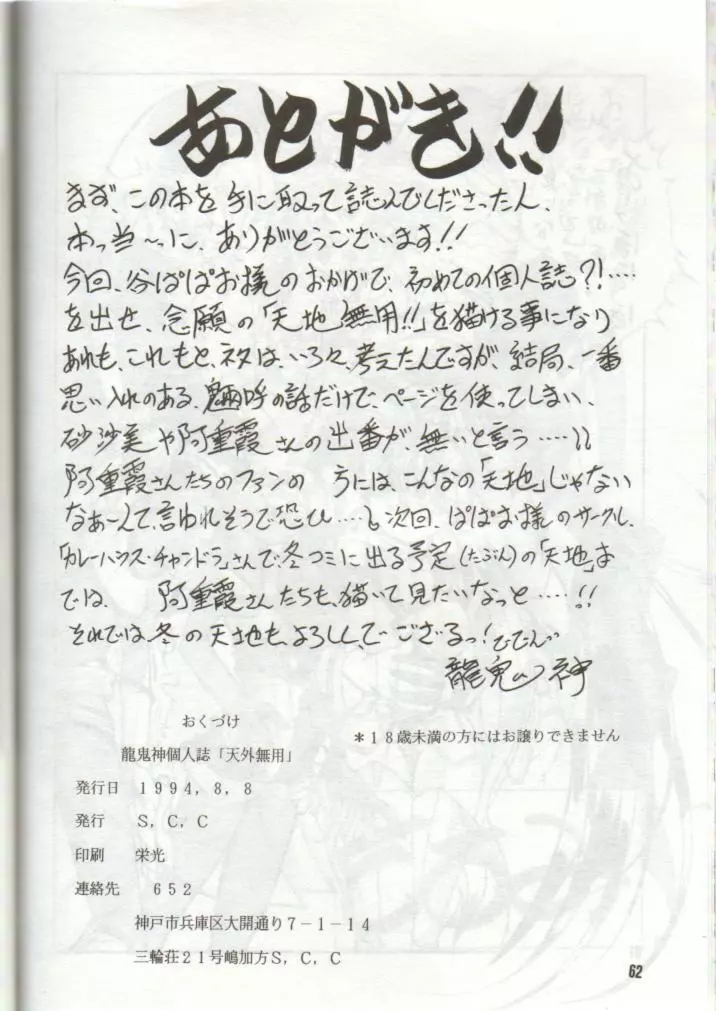 あとがき!!
まず、この本を手に取って読んでくださった人、
本っ当〜っに、ありがとうございます!!
今回、谷ぱぱお様のおかげで、初めての個人誌?!‥‥
を出せ、念願の「天地無用!!」を描ける事になり
あれも、これもと、ネタは、いろいろ、考えたんですが、結局、一番
思い入れのある、魎呼の話だけで、ページを使ってしまい、
砂沙美や阿重霞さんの出番が、無いと言う‥‥
阿重霞さんたちのファンの 方には、こんなの「天地」じゃない
なぁーんて、言われそうで恐ひ‥‥ 次回、ぱぱお様のサークル、
「カレーハウス・チャンドラ」さんで、冬コミに出る予定(たぶん)の「天地」本
では、 阿重霞さんたちも、描いて見たいなっと‥‥!!
それでは冬の天地も、よろしくで、ござるっ!
龍鬼神
おくづけ
*18歳未満の方にはお譲りできません
龍鬼神個人誌「天外無用」
発行日 1994,8,8
発行 S,C,C
印刷 栄光
連絡先 652
神戸市兵庫区大開通り7-1-14
三輪荘21号嶋加方S,C,C
62